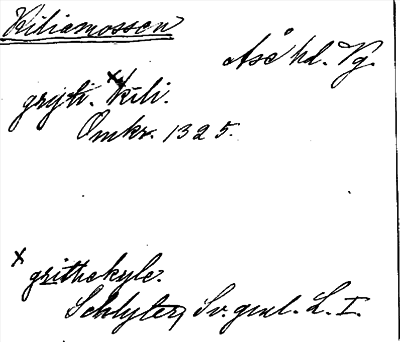 Kiliamossen
Åse hd. Vg.
gryti. ˣkili.
Omkr. 1325.
ˣ grithekyle.
Schlyter, Sv. gml. L. I.